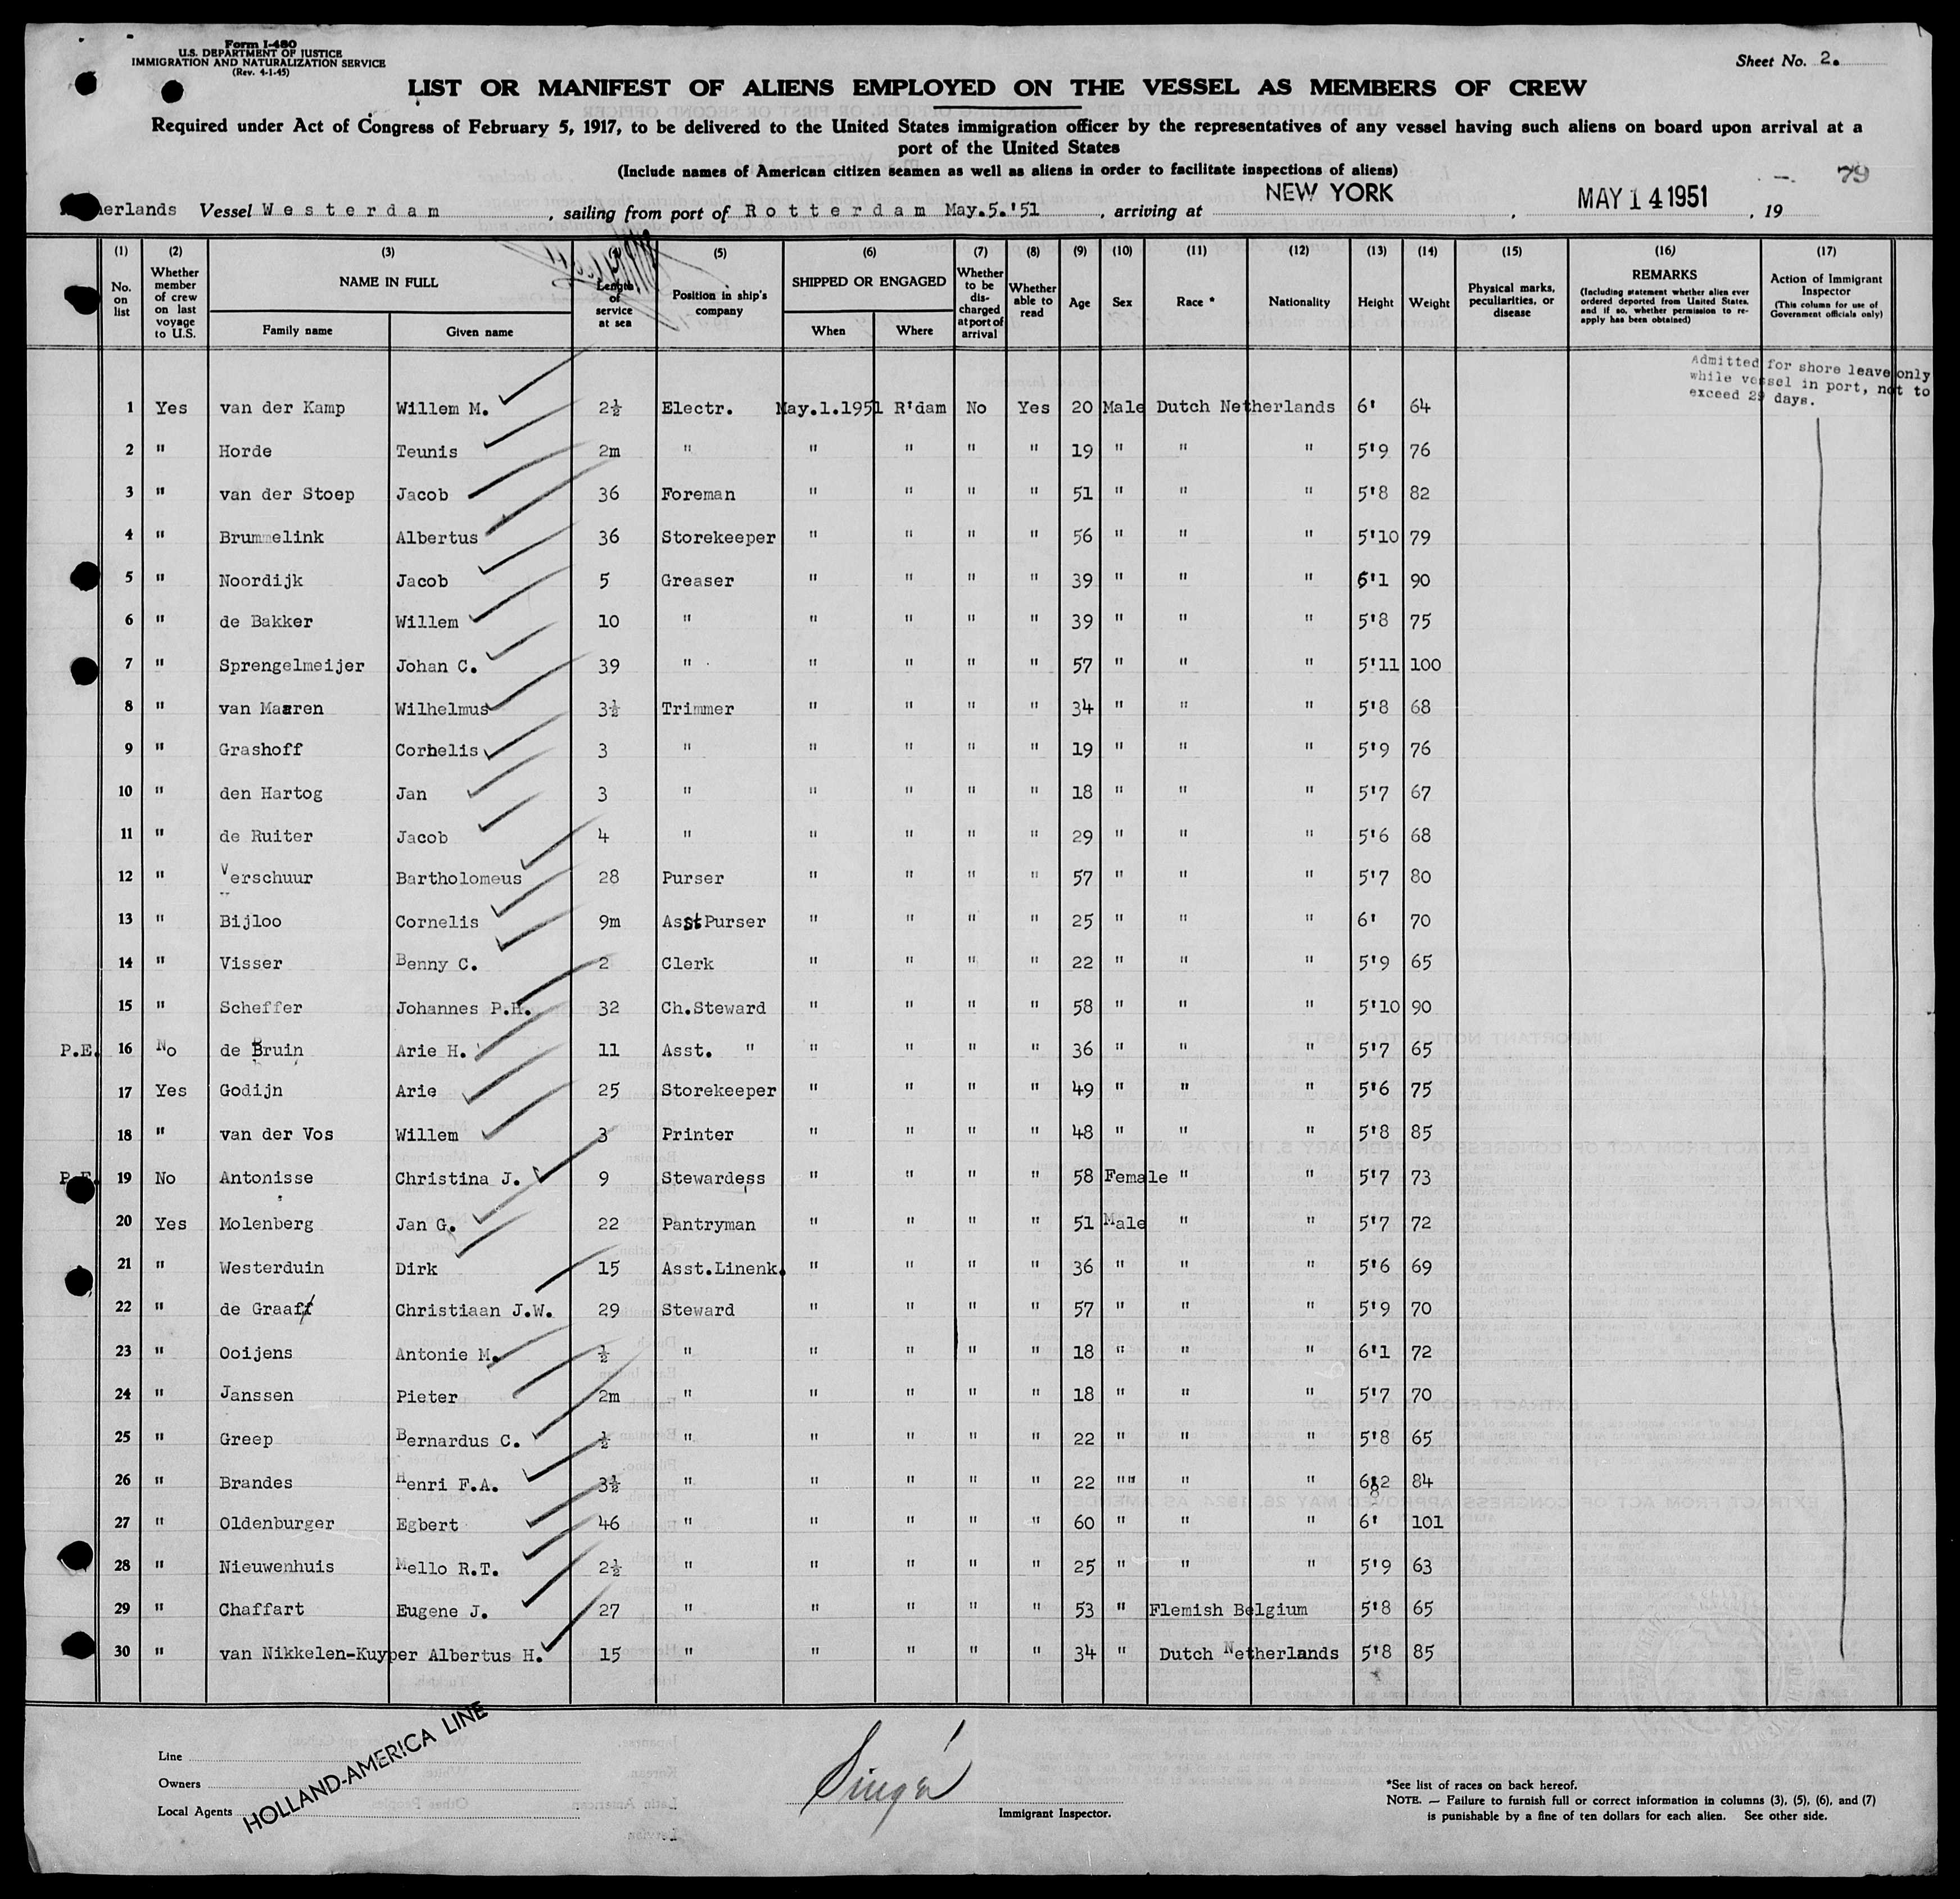 Form I-480
U.S. DEPARTMENT OF JUSTICE
IMMIGRATION AND NATURALIZATION SERVICE
(Rev. 4-1-45)
Sheet No. 2.
LIST OR MANIFEST OF ALIENS EMPLOYED ON THE VESSEL AS MEMBERS OF CREW
Required under Act of Congress of February 5, 1917, to be delivered to the United States immigration officer by the representatives of any vessel having such aliens on board upon arrival at a
port of the United States
(Include names of American citizen seamen as well as aliens in order to facilitate inspections of aliens)
79
erlands Vessel Westerdam, sailing from port of Rotterdam May.5.'51, arriving at NEW YORK, MAY 14 1951, 19
(1) (2) (3) (5) (6) (7) (8) (9) (10) (11) (12) (13) (14) (15) (16) (17)
No. on list
Whether member of crew on last voyage to U.S.
NAME IN FULL
Family name
Given name
Length of service at sea
Position in ship's company
SHIPPED OR ENGAGED
When
Where
Whether to be discharged at port of arrival
Whether able to read
Age
Sex
Race *
Nationality
Height
Weight
Physical marks, peculiarities, or disease
REMARKS
(Including statement whether alien ever ordered deported from United States, and if so, whether permission to re-apply has been obtained)
Action of Immigrant Inspector
(This column for use of Government officials only)
Admitted for shore leave only
while vessel in port, not to
exceed 29 days.
1 Yes van der Kamp Willem M. 2½ Electr. May.1.1951 R'dam No Yes 20 Male Dutch Netherlands 6' 64
2 " Horde Teunis 2m " " " " " 19 " " " 5'9 76
3 " van der Stoep Jacob 36 Foreman " " " " 51 " " " 5'8 82
4 " Brummelink Albertus 36 Storekeeper " " " " 56 " " " 5'10 79
5 " Noordijk Jacob 5 Greaser " " " " 39 " " " 6'1 90
6 " de Bakker Willem 10 " " " " " 39 " " " 5'8 75
7 " Sprengelmeijer Johan C. 39 " " " " " 57 " " " 5'11 100
8 " van Maaren Wilhelmus 3½ Trimmer " " " " 34 " " " 5'8 68
9 " Grashoff Cornelis 3 " " " " " 19 " " " 5'9 76
10 " den Hartog Jan 3 " " " " " 18 " " " 5'7 67
11 " de Ruiter Jacob 4 " " " " " 29 " " " 5'6 68
12 " Verschuur Bartholomeus 28 Purser " " " " 57 " " " 5'7 80
13 " Bijloo Cornelis 9m Asst Purser " " " " 25 " " " 6' 70
14 " Visser Benny C. 2 Clerk " " " " 22 " " " 5'9 65
15 " Scheffer Johannes P.H. 32 Ch.Steward " " " " 58 " " " 5'10 90
P.E. 16 No de Bruin Arie H. 11 Asst. " " " " " 36 " " " 5'7 65
17 Yes Godijn Arie 25 Storekeeper " " " " 49 " " " 5'6 75
18 " van der Vos Willem 3 Printer " " " " 48 " " " 5'8 85
P.E. 19 No Antonisse Christina J. 9 Stewardess " " " " 58 Female " " 5'7 73
20 Yes Molenberg Jan G. 22 Pantryman " " " " 51 Male " " 5'7 72
21 " Westerduin Dirk 15 Asst.Linenk. " " " " 36 " " " 5'6 69
22 " de Graaff Christiaan J.W. 29 Steward " " " " 57 " " " 5'9 70
23 " Ooijens Antonie M. ½ " " " " " 18 " " " 6'1 72
24 " Janssen Pieter 2m " " " " " 18 " " " 5'7 70
25 " Greep Bernardus C. ½ " " " " " 22 " " " 5'8 65
26 " Brandes Henri F.A. 3½ " " " " " 22 "" " " 6'2 84
27 " Oldenburger Egbert 46 " " " " " 60 " " " 6' 101
28 " Nieuwenhuis Mello R.T. 2½ " " " " " 25 " " " 5'9 63
29 " Chaffart Eugene J. 27 " " " " " 53 " Flemish Belgium 5'8 65
30 " van Nikkelen-Kuyper Albertus H. 15 " " " " " 34 " Dutch Netherlands 5'8 85
Line
Owners
Local Agents
HOLLAND-AMERICA LINE
Immigrant Inspector.
*See list of races on back hereof.
NOTE. — Failure to furnish full or correct information in columns (3), (5), (6), and (7)
is punishable by a fine of ten dollars for each alien. See other side.